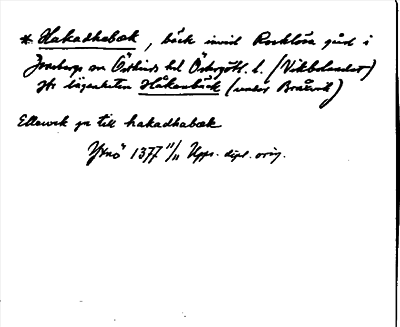 * Hakadhabæk, bäck invid Rocklösa gård i
Jonsbergs sn Östkinds hd Östergötl. l. (Vikbolandet)
jfr lägenheten Håkanbäck (under Bråvik)
Ellewek pa till hakadhabæk
Ytnö 1377 11/11 Upps. dipl. orig.